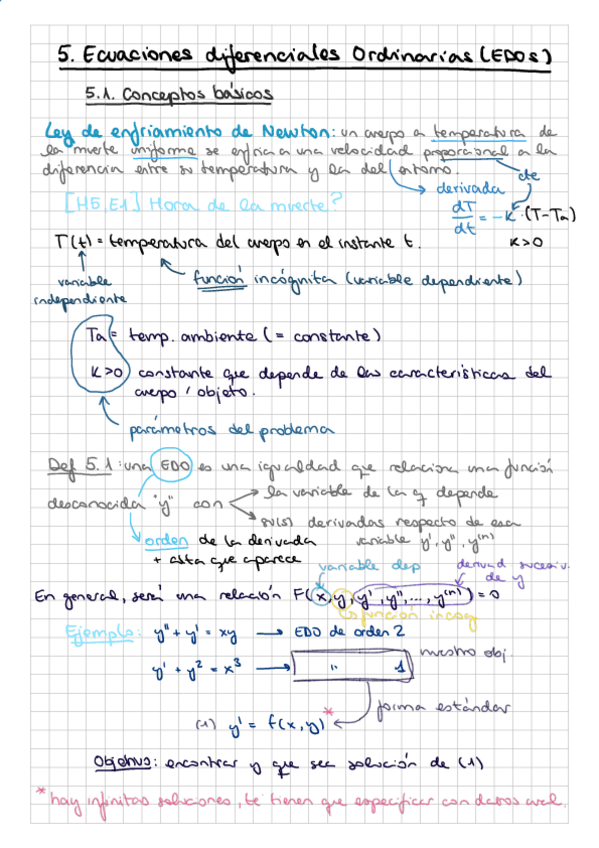 5. Ecuaciones diferenciales Ordinarias (EDOs)
5.1. Conceptos básicos
Ley de enfriamiento de Newton: un cuerpo a temperatura de
la muerte uniforme se enfria a una velocidad proporcional a la
diferencia entre su temperatura y la del entorno.
cte
derivada
[H5, E1] Hora de la muerte?
dT/dt = -K · (T-Ta)
T(t) = temperatura del cuerpo en el instante t.
K>0
variable independiente
función incógnita (variable dependiente)
Ta = temp. ambiente (= constante)
K>0 constante que depende de las características del
cuerpo / objeto.
parámetros del problema
Def 5.1: una EDO es una igualdad que relaciona una función
desconocida "y" con
la variable de la q depende
su(s) derivadas respecto de esa
variable y', y'', y⁽ⁿ⁾
orden de la derivada
+ alta que aparece
variable dep
derivad sucesiv.
de y
En general, será una relación F(x, y, y', y'', ..., y⁽ⁿ⁾) = 0
función incog
Ejemplo: y'' + y' = xy → EDO de orden 2
y' + y² = x³ → " 1
nuestro obj
forma estándar
(1) y' = f(x, y) *
Objetivo: encontrar y que sea solución de (1)
* hay infinitas soluciones, te tienen que especificar con datos cual.